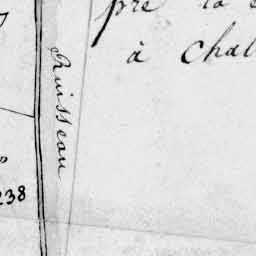 pré la
à chal
Ruisseau
238